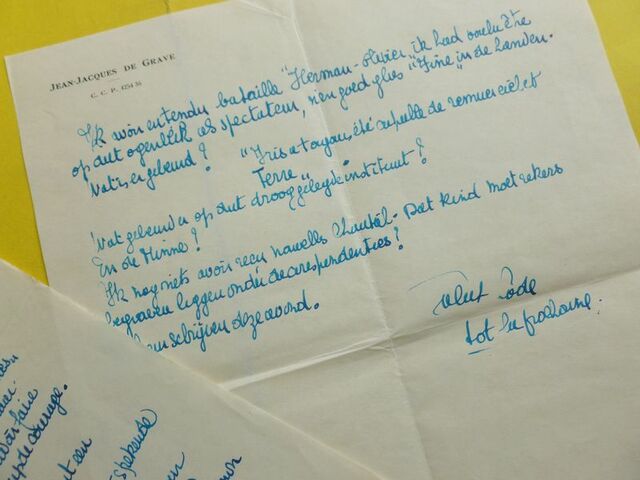 JEAN-JACQUES DE GRAVE
C. C. P. 1254 36
Ik avoir entendu bataille "Herman-Olivier, ik had voulu être
op dat ogenblik als spectateur, n'en goed glas "Fine" in de handen.
Wat is er gebeurd? "Iris a toujou, été capable de remuer ciel et
Terre"
Wat gebeurd er op dat drooggelegde instituut?
En de Minne?
Ik nog niets avoir reçu nouvelles Chantal. Dat kind moet zekers
begraven liggen onder de correspondenties!
schrijven deze avond.
Salut
tot la prochaine.
faire
courage.